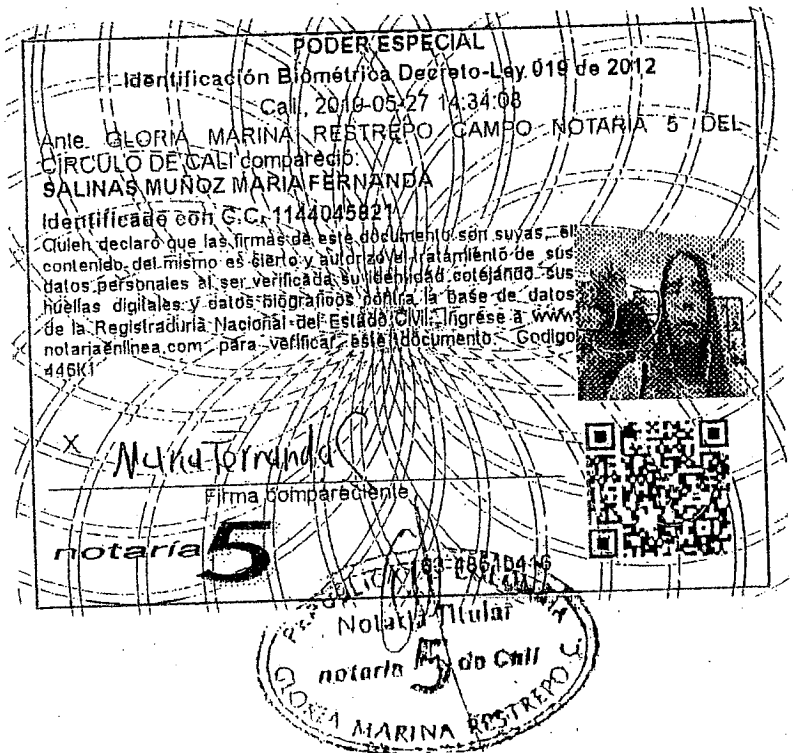 PODER ESPECIAL
Identificación Biométrica Decreto-Ley 019 de 2012
Cali, 2019-05-27 14:34:08
Ante GLORIA MARINA RESTREPO CAMPO NOTARIA 5 DEL
CÍRCULO DE CALI compareció:
SALINAS MUÑOZ MARIA FERNANDA
Identificado con C.C. 1144045821
Quien declaró que las firmas de este documento son suyas, el
contenido del mismo es cierto y autorizó el tratamiento de sus
datos personales al ser verificada su identidad cotejando sus
huellas digitales y datos biográficos contra la base de datos
de la Registraduría Nacional del Estado Civil. Ingrese a www
notariaenlinea.com para verificar este documento. Codigo
446K1
X Maria Fernanda S
Firma compareciente
notaría 5
REPUBLICA DE COLOMBIA
Notaria Titular
notaria 5 de Cali
GLORIA MARINA RESTREPO C